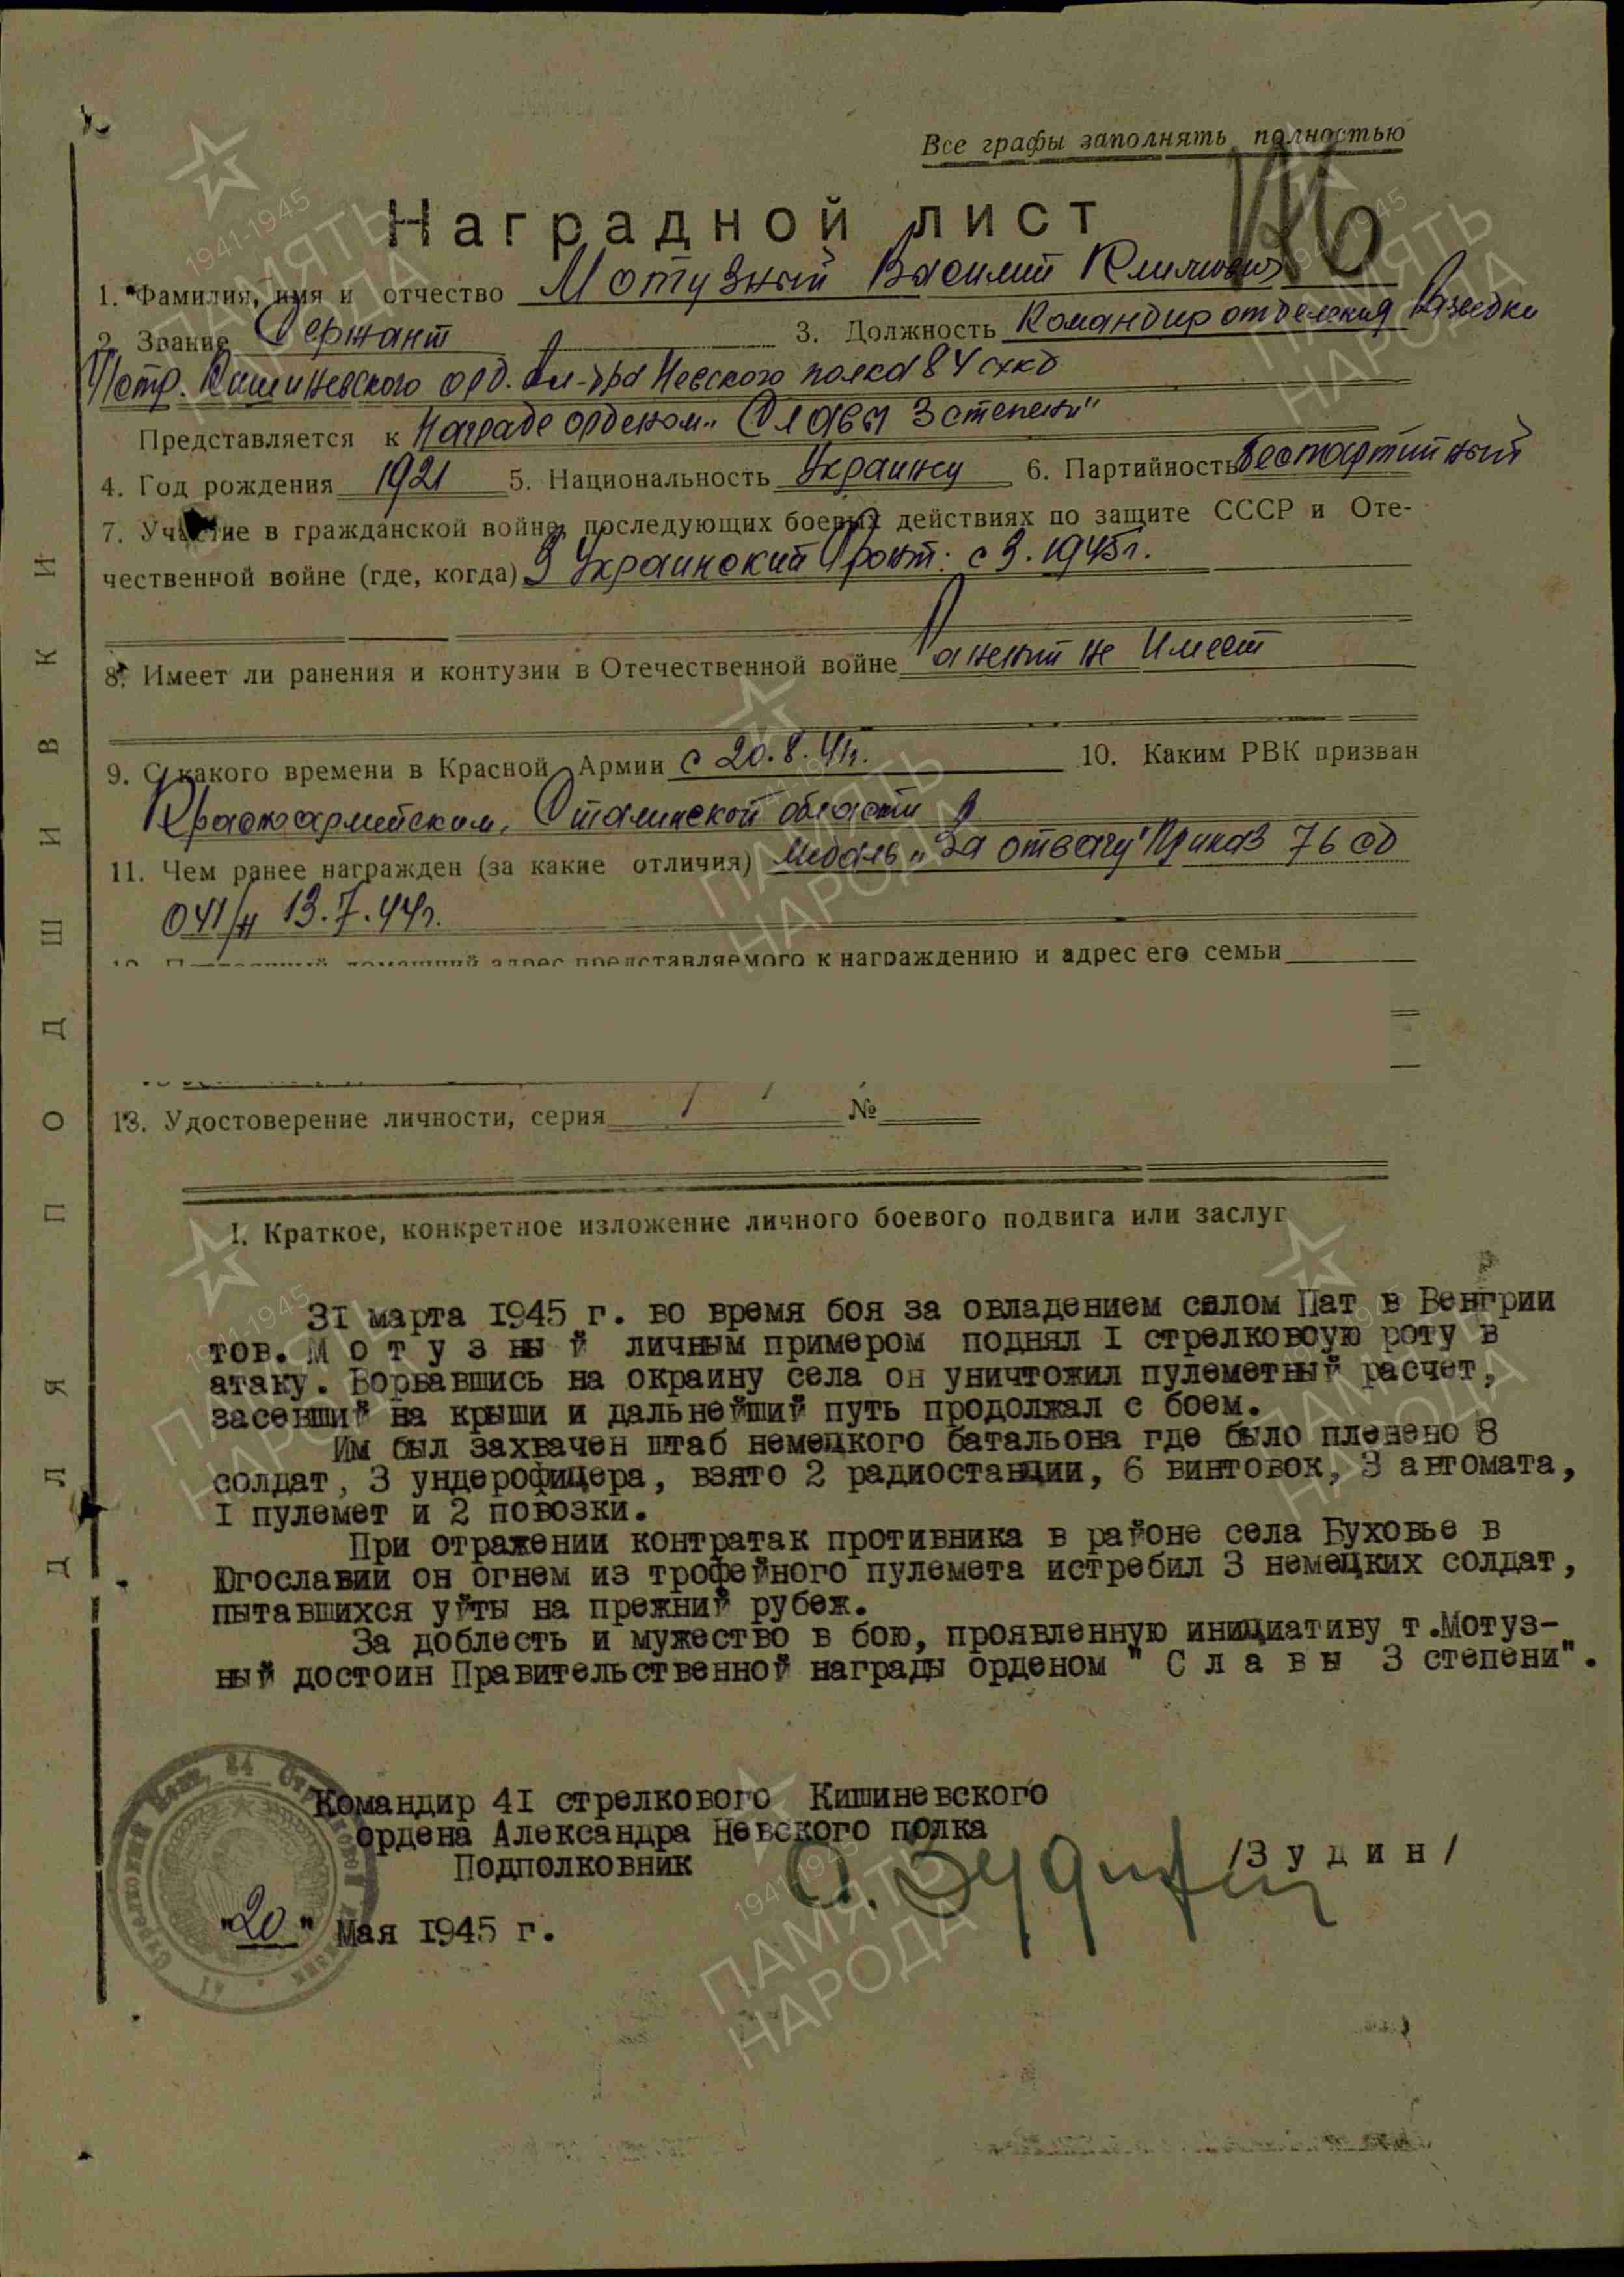 Все графы заполнять полностью
Наградной лист
1. Фамилия, имя и отчество Мотузный Василий Климович
2. Звание Сержант 3. Должность Командир отделения разведки
41 стр. Кишиневского орд. Ал-дра Невского полка 84 схкд
Представляется к Награде орденом „Славы 3 степени"
4. Год рождения 1921 5. Национальность Украинец 6. Партийность беспартийный
7. Участие в гражданской войне, последующих боевых действиях по защите СССР и Оте-
чественной войне (где, когда) 3 Украинский фронт: с 3. 1945г.
8. Имеет ли ранения и контузии в Отечественной войне Ранений не имеет
9. С какого времени в Красной Армии с 20.8.41г. 10. Каким РВК призван
Красноармейским, Сталинской области
11. Чем ранее награжден (за какие отличия) Медаль „За отвагу" Приказ 76 сд
041/н 13.7.44г.
12. Постоянный домашний адрес представляемого к награждению и адрес его семьи
13. Удостоверение личности, серия №
I. Краткое, конкретное изложение личного боевого подвига или заслуг
31 марта 1945 г. во время боя за овладением селом Пат в Венгрии
тов. М о т у з ны й личным примером поднял I стрелковоую роту в
атаку. Ворвавшись на окраину села он уничтожил пулеметный расчет,
засевший на крыши и дальнейший путь продолжал с боем.
Им был захвачен штаб немецкого батальона где было пленено 8
солдат, 3 ундерофицера, взято 2 радиостанции, 6 винтовок, 3 автомата,
I пулемет и 2 повозки.
При отражении контратак противника в районе села Буховье в
Югославии он огнем из трофейного пулемета истребил 3 немецких солдат,
пытавшихся уйты на прежний рубеж.
За доблесть и мужество в бою, проявленную инициативу т.Мотуз-
ный достоин Правительственной награды орденом " С л а в ы 3 степени".
Командир 41 стрелкового Кишиневского
ордена Александра Невского полка
Подполковник /З у д и н/
"20" Мая 1945 г.
ДЛЯ ПОДШИВКИ
1941-1945
ПАМЯТЬ
НАРОДА